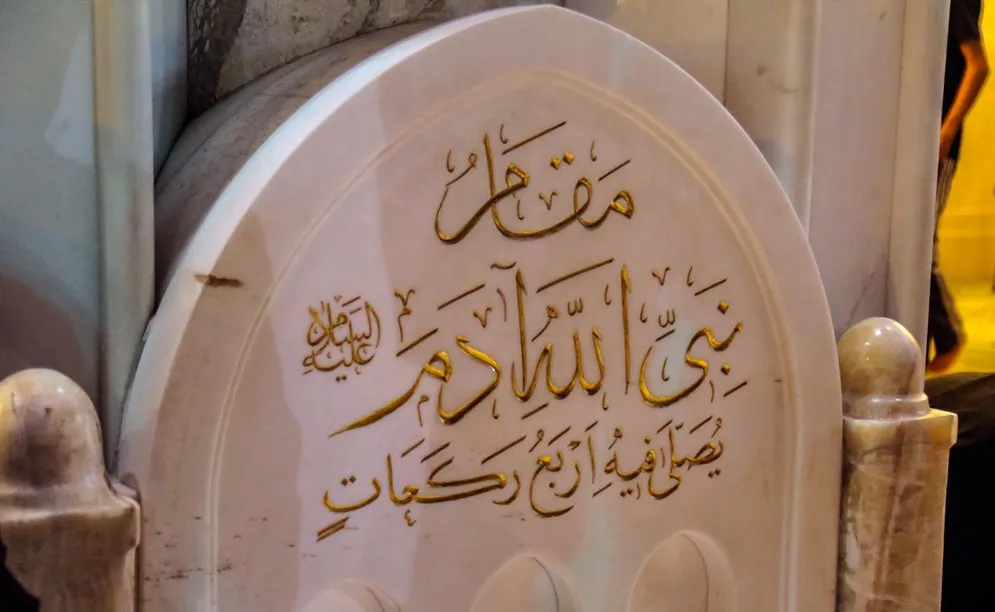 مَقَامُ
نَبِيِّ اللّٰهِ آدَمَ عَلَيْهِ السَّلَامُ
يُصَلّٰى فِيهِ اَرْبَعُ رَكَعَاتٍ